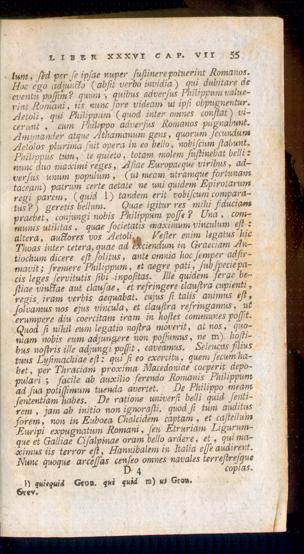 LIBER XXXVI CAP. VII 55
lum, sed per se ipsae nuper sustinere potuerint Romanos.
Hoc ego adjuncto (absit verbo invidia) qui dubitare de
eventu possim? quum, quibus adversus Philippum value-
rint Romani, iis nunc fore videam ut ipsi obpugnentur.
Aetoli, qui Philippum (quod inter omnes constat) vi-
cerunt, cum Philippo adversus Romanos pugnabunt.
Amynander atque Athamanum gens, quorum secundum
Aetolos plurima fuit opera in eo bello, nobiscum stabunt.
Philippus tum, te quieto, totam molem sustinebat belli:
nunc duo maximi reges, Asiae Europaeque viribus, ad-
versus unum populum, (ut meam utramque fortunam
taceam) patrum certe aetate ne uni quidem Epirotarum
regi parem, (quid l) tandem erit vobiscum compara-
tus?) geretis bellum. Quae igitur res mihi fiduciam
praebet, conjungi nobis Philippum posse? Una, com-
munis utilitas, quae societatis maximum vinculum est:
altera, auctores vos Aetoli. Vester enim legatus hic
Thoas inter cetera, quae ad exciendum in Graeciam An-
tiochum dicere est solitus, ante omnia hoc semper adfir-
mavit; fremere Philippum, et aegre pati, sub specie pa-
cis leges servitutis sibi inpositas. Ille quidem ferae be-
stiae vinctae aut clausae, et refringere claustra cupienti,
regis iram verbis aequabat. cujus si talis animus est,
solvamus nos ejus vincula, et claustra refringamus, ut
erumpere diu coercitam iram in hostes communes possit.
Quod si nihil eum legatio nostra moverit, at nos, quo-
niam nobis eum adjungere non possumus, ne m) hosti-
bus nostris ille adjungi possit, caveamus. Seleucus filius
tuus Lysimachiae est: qui si eo exercitu, quem secum ha-
bet, per Thraciam proxima Macedoniae coeperit depo-
pulari; facile ab auxilio ferendo Romanis Philippum
ad sua potissimum tuenda avertet. De Philippo meam
sententiam habes. De ratione universi belli quid senti-
rem, jam ab initio non ignorasti. quod si tum auditus
forem, non in Euboea Chalcidem captam, et castellum
Euripi expugnatum Romani, sed Etruriam Ligurum-
que et Galliae Cisalpinae oram bello ardere, et, qui ma-
ximus iis terror est, Hannibalem in Italia esse audirent.
Nunc quoque arcessas censeo omnes navales terrestresque
D 4 copias.
l) quicquid Gron. qui quid m) us Gron.
Grev.